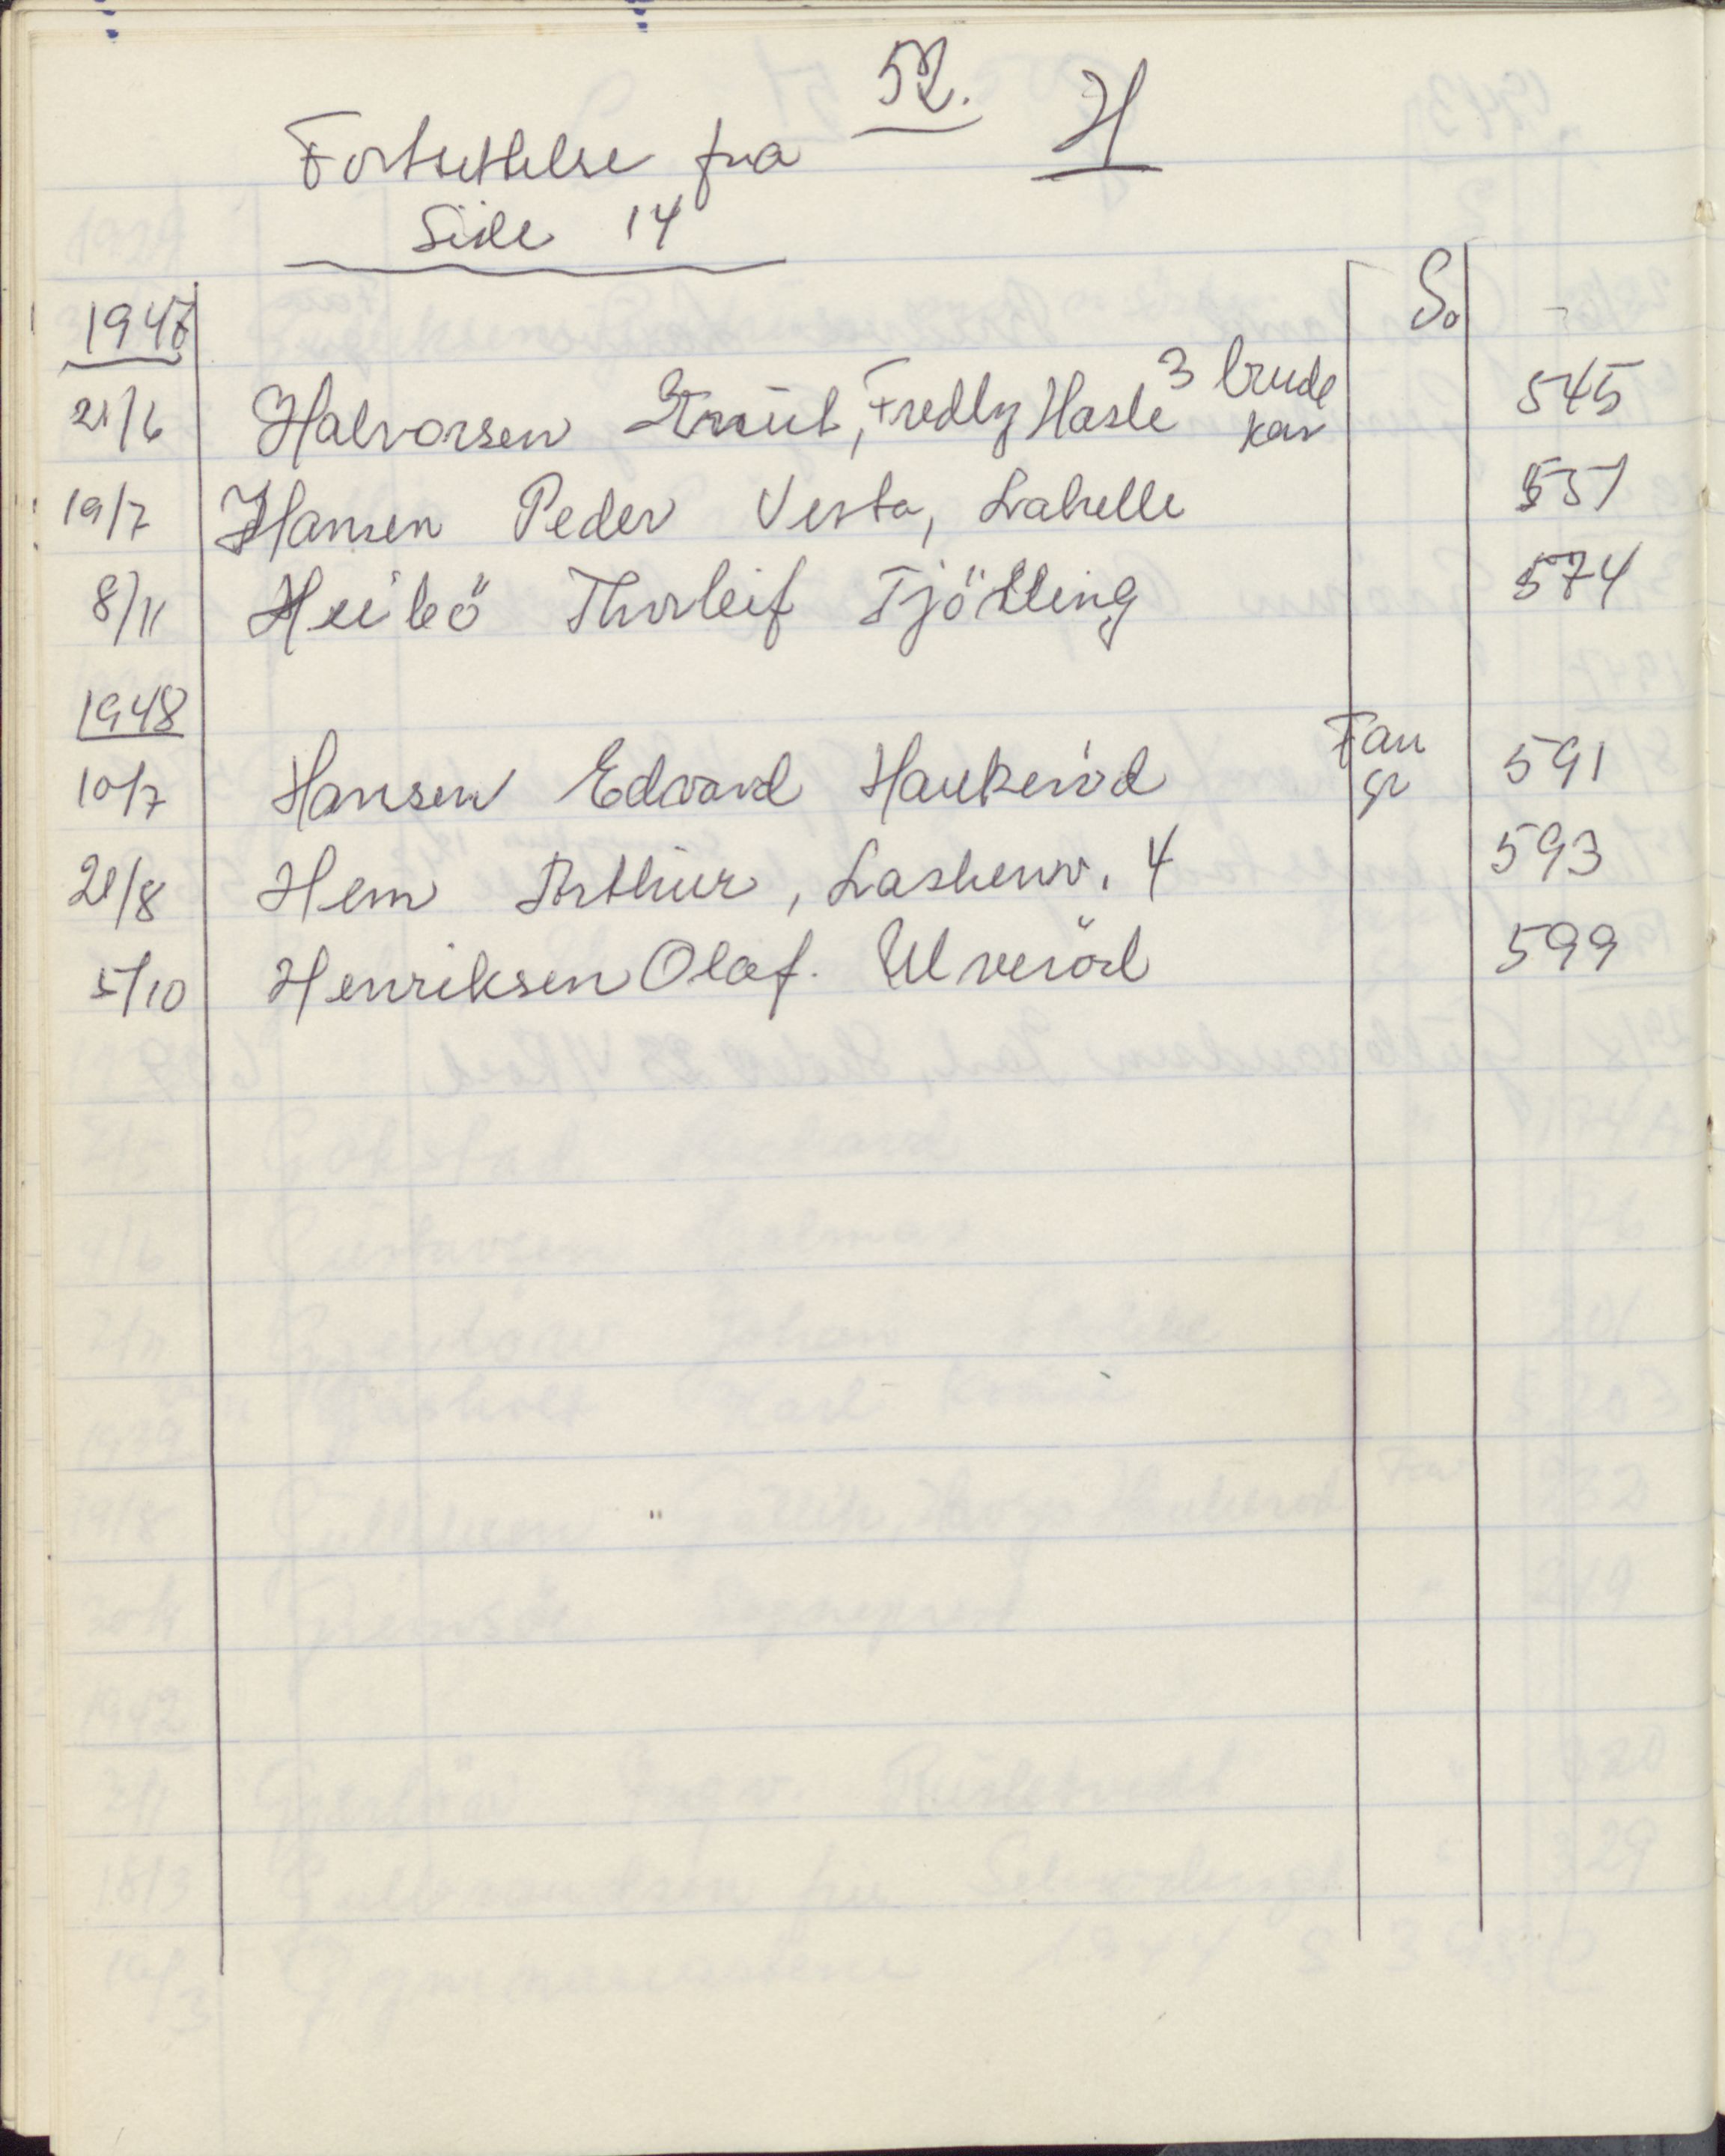 52. H
Fortsettelse fra
Side 14
1947 S.
21/6 Halvorsen Knut, Fredly Hasle 3 brude kar 545
19/7 Hansen Peder Vesta, Labelle 551
8/11 Heibö Thorleif Tjölling 574
1948
10/7 Hansen Edvard Haukeröd Fan gr 591
21/8 Hem Arthur, Laskenv. 4 593
5/10 Henriksen Olaf. Ulveröd 599